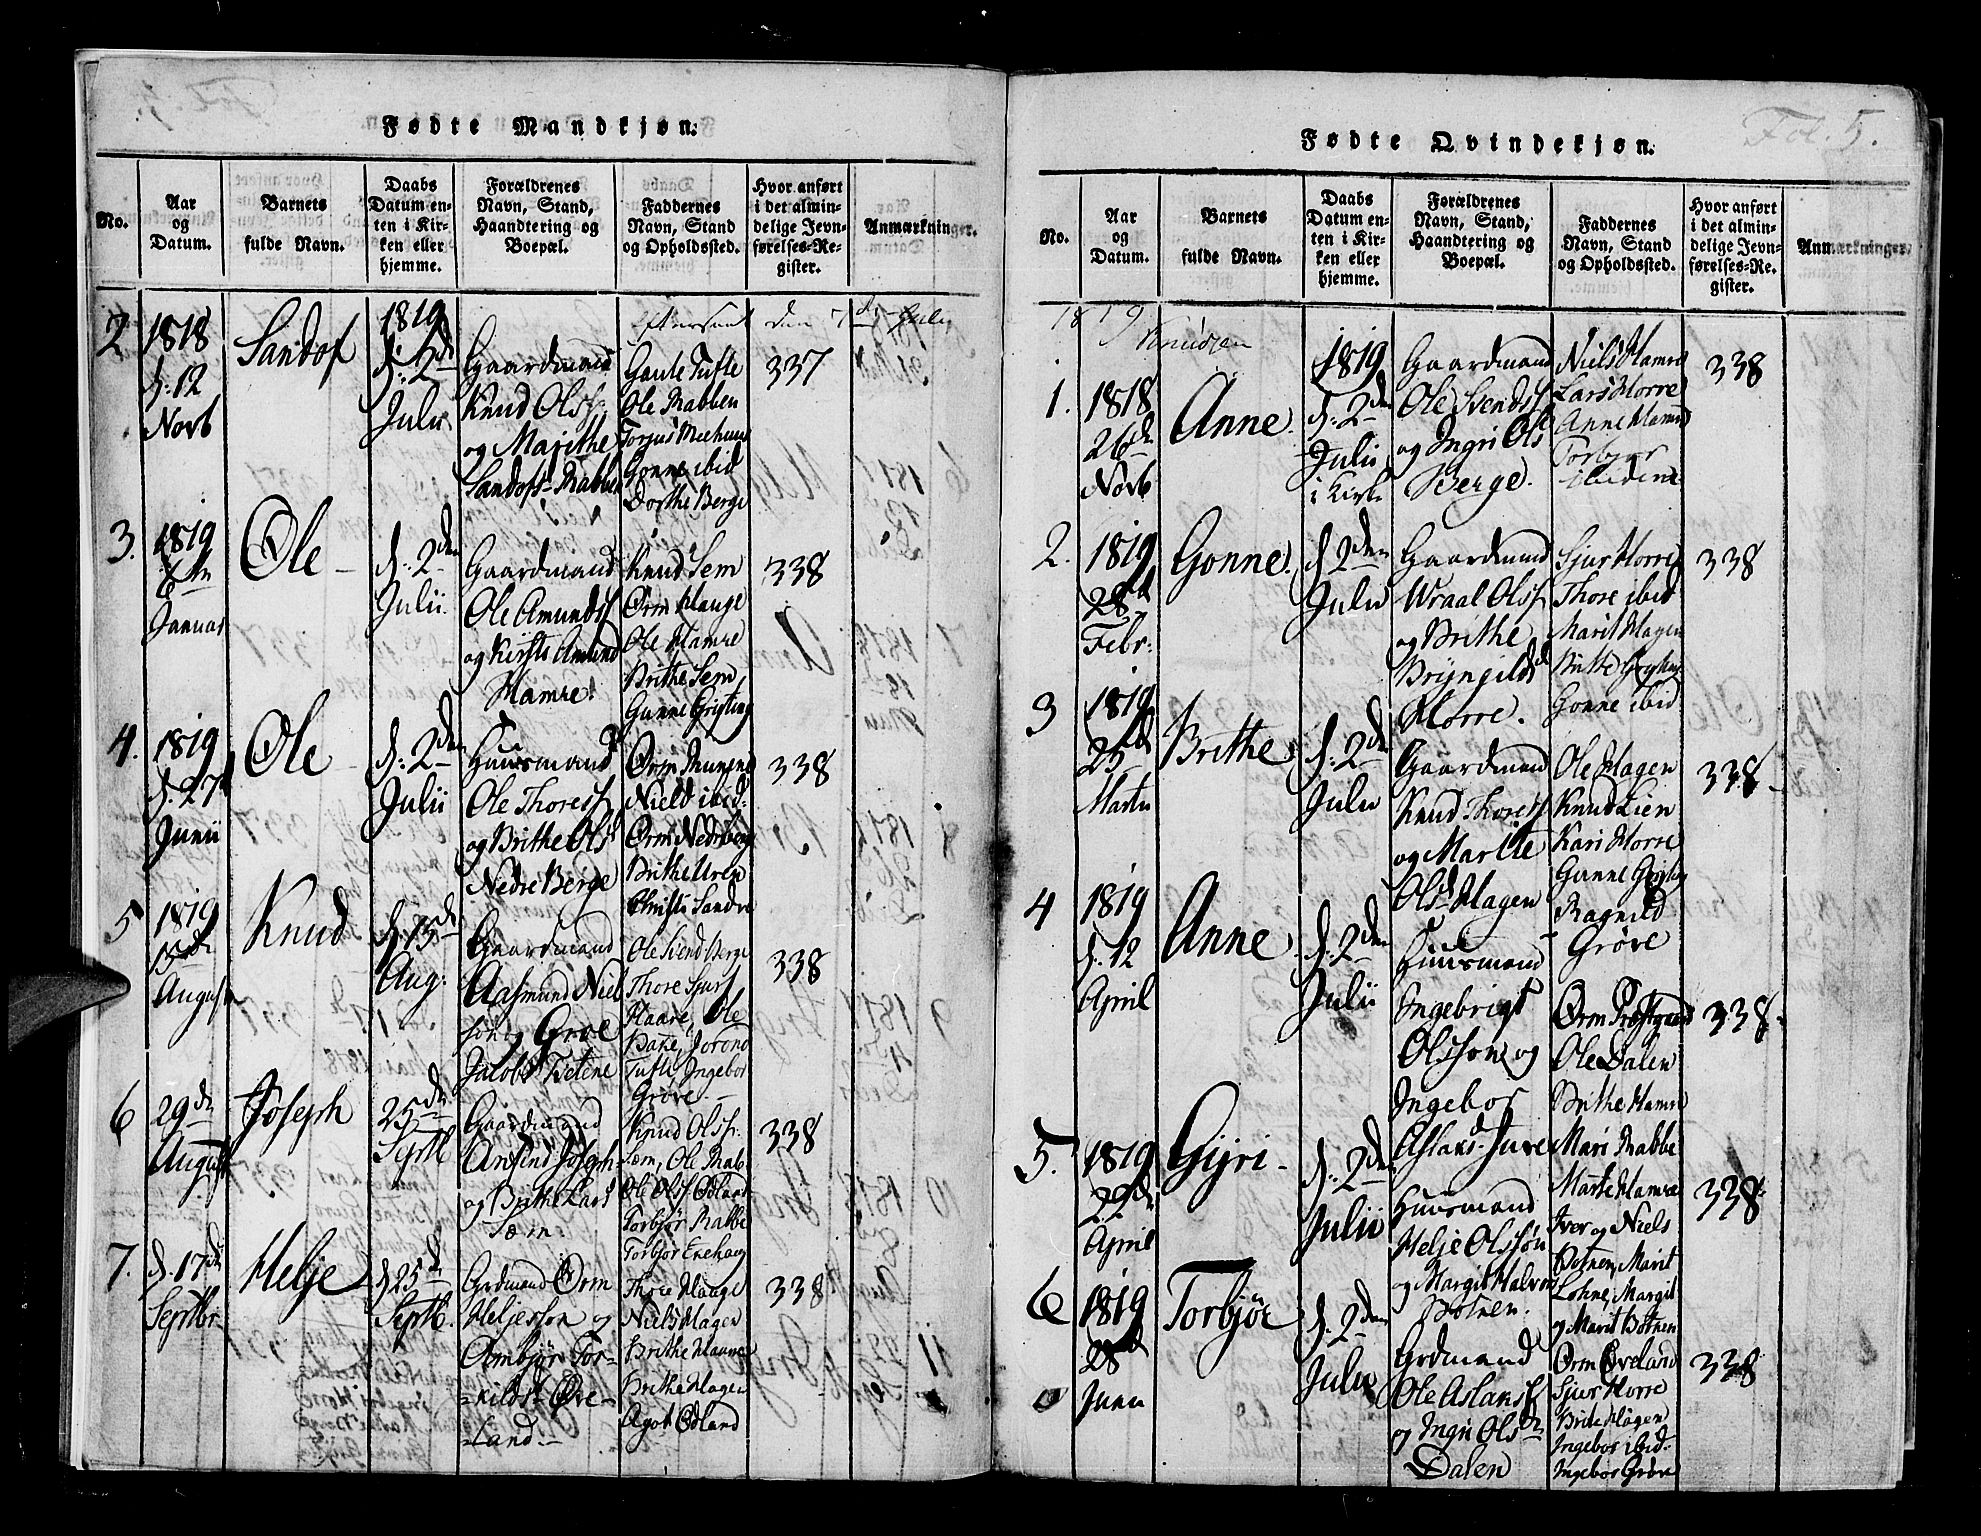 Fødte Mandkjøn.
No.
Aar og Datum.
Barnets fulde Navn.
Daabs Datum enten i Kirken eller hjemme.
Forældrenes Navn, Stand, Haandtering og Boepæl.
Faddernes Navn, Stand og Opholdssted.
Hvor anført i det almindelige Jevnførelses-Register.
Anmærkninger.
2
1818
d. 12
Novb
Sandof
1819
d. 2den
Julii
Gaardmand
Knud Olss.
og Margithe
Sandofs- Rabben
Gaute Tufte
Ole Rabben
Torjus Meehuus
Gonne ibid
Dorthe Berge
337
3.
1819
6te
Januar
Ole
d. 2den
Julii
Gaardmand
Ole Amundss
og Kirsti Amund
Hamre
Knud Sem
Orm Hauge
Ole Hamre
Brithe Sem
Gunne Grigting
338
4.
1819
d. 27
Junii
Ole
d. 2den
Julii
Huusmand
Ole Thoress
og Brithe Olsd
Nedre Berge
Orm
Niels ibid.
Orm Nedreberg
Brithe Uren
Sandre
338
5
1819
15de
August
Knud
d. 15de
Aug:
Gaardmand
Aasmund Niel
son og Groe
Jacobs Tvetene
Ole Svend Berge
Thore Sjurs
Haare, Ole
Bake, Jorond
Tufte, Ingebor
Grøve
338
6
29de
August
Joseph
25de
Septb
Gaardmand
Amund Joseph
og Brithe Lars
Sæm.
Knud Olss.
Sem, Ole Rab
Ole Olss Odland
Torbjør Rabbe
Torbjør Enehaug
338
7.
d. 17de
Septbr.
Helje
d 25de
Septb.
Grdmand Orm
Heljesson og
Ambjør Tor-
-kilds- Øve-
-land.
Thore Hauge
Niels Hagen
Brithe Haune
Brithe Hagen
Agot Odland
338
Fol. 5.
Fødte Qvindekjøn.
No.
Aar og Datum.
Barnets fulde Navn.
Daabs Datum enten i Kirken eller hjemme.
Forældrenes Navn, Stand, Haandtering og Boepæl.
Faddernes Navn, Stand og Opholdssted.
Hvor anført i det almindelige Jevnførelses-Register.
Anmærkninger.
1819
1.
1818
26de
Novb
Anne
1819
d. 2den
Julii
i Kirke
Gaardmand
Ole Svendss
og Ingri Ols
Berge.
Niels Hamre
Lars Horre
Anne Hamre
Torbjør
338
2.
1819
28de
Febr:
Gonne
d. 2den
Julii
Gaardmand
Wraal Olss
og Brithe
Bryngilds
Horre.
Sjur Horre
Thore ibid
Marit Hagen
Britte Grigting
Gonne ibid
338
3
1819
25de
Martii
Brithe
d. 2den
Julii
Gaardmand
Knud Thoress
og Marthe
Olsd Hagen
Ole Hagen
Knud Lien
Kari Horre
Gunne Grigting
Ragnild
Grøve
338
4
1819
d. 12
April
Anne
d. 2den
Julii
Huusmand
Ingebrigt
Olsson og
Ingebor
Aslaks- Jure
Orm Prestgaard
Ole Dalen
Brithe Hamre
Mari Rabbe
Marte Hamre
338
5.
1819
22de
April
Gijri
d. 2den
Julii
Huusmand
Helje Olsson
og Margit Halvor
Botnen.
Iver og Niels
Botnen, Marit
Lohne, Margit
og Marit Botnen
338
6
1819
28
Junii
Torbjør
d. 2den
Julii
Grdmand
Ole Aslakss
og Ingri Olsd
Dalen
Orm Øveland
Sjur Horre
Brite Hagen
Ingebor ibid
Ingebor Grøve
338